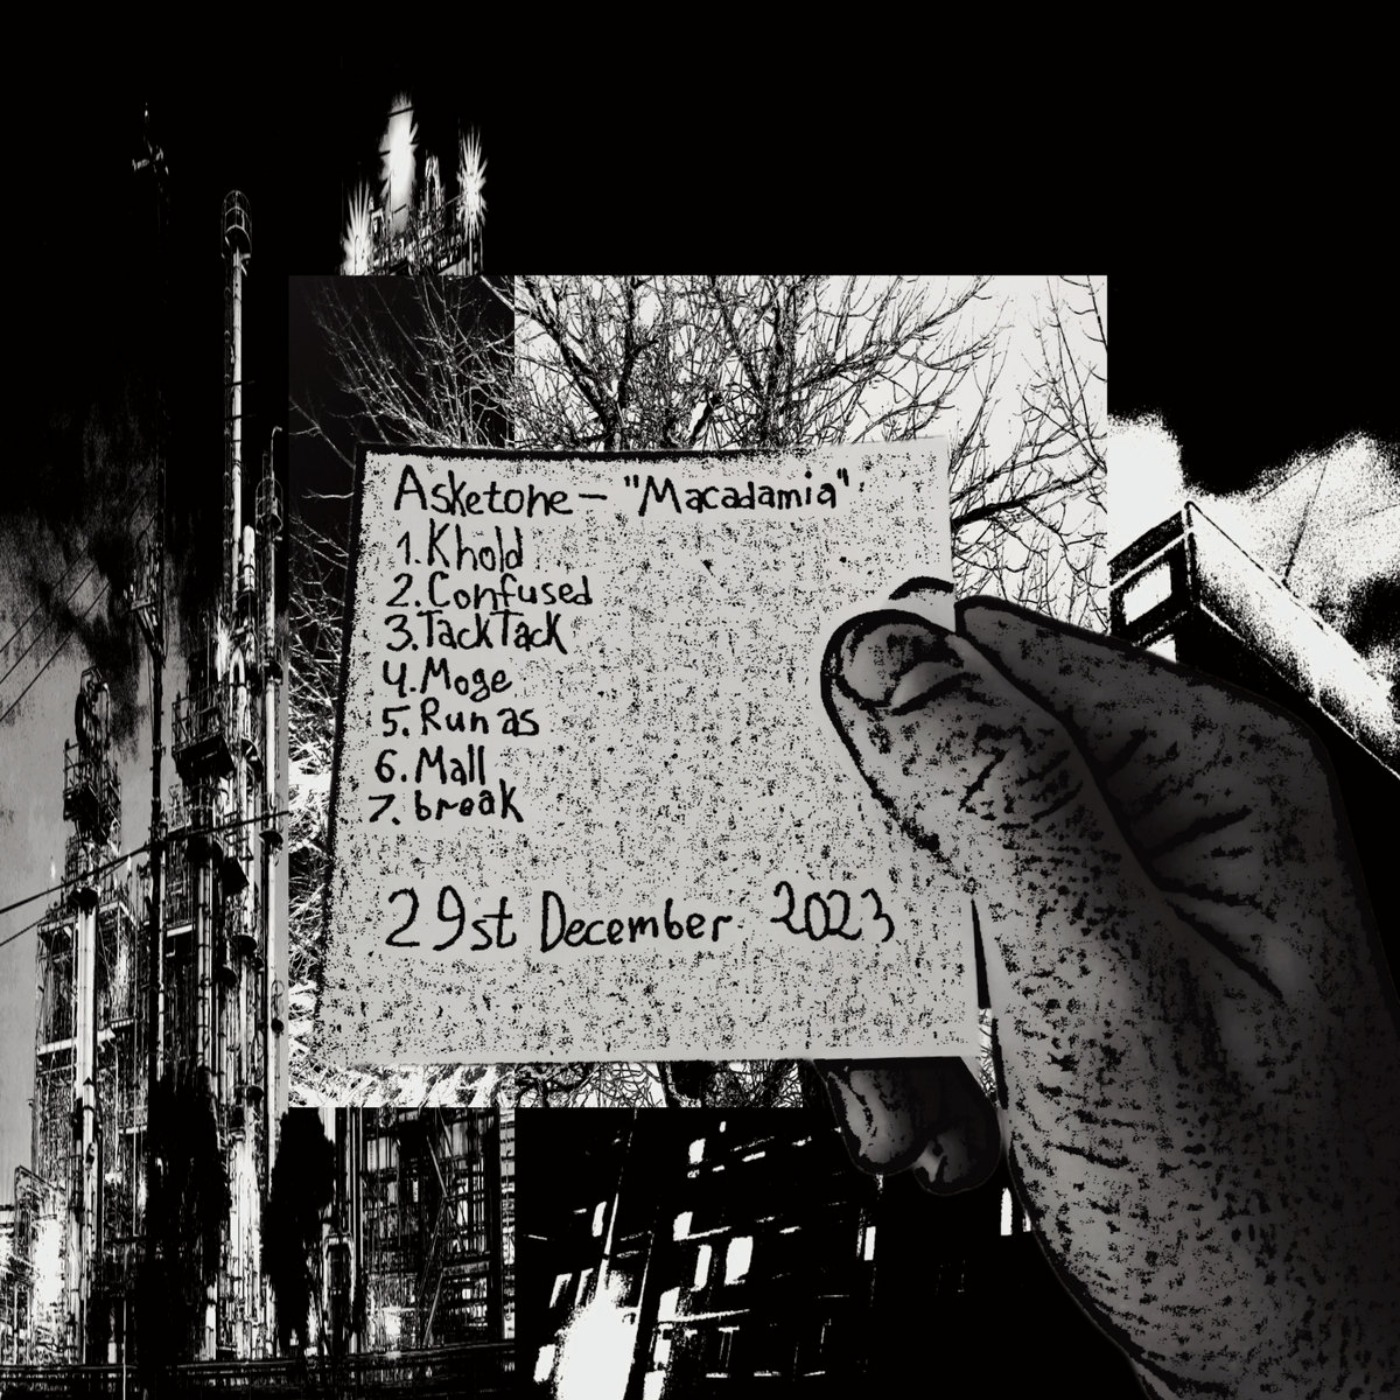 Asketone – "Macadamia"
1. Khold
2. Confused
3. TackTack
4. Moge
5. Run as
6. Mall
7. break
29st December 2023